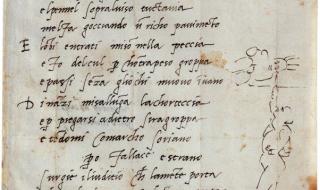 elpennel sopraluiso tuctavia
melfa gocciando ũ richo pavimeto
E lobi entrati miso nella peccia
e fo delcul p chotrapeso groppa
e passi seza gliochi muovo ivano
D inazi misalunga lachorteccia
e p piegarsi adietro siragroppa
e tedomi comarcho soriano
po fallace e strano
surgie iliuditio ch lamete porta